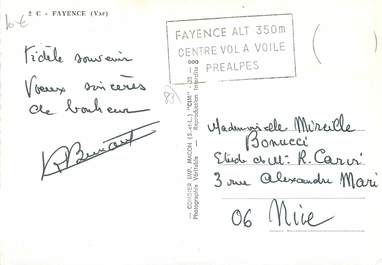 2 C - FAYENCE (Var)
FAYENCE ALT 350m
CENTRE VOL A VOILE
PREALPES
Fidèle souvenir
Voeux sincères
de bonheur
COMBIER IMP. MACON (S.-&-L.) "CIM"
Photographie Véritable - Reproduction Interdite
Mademoiselle Mireille
Bonucci
Etude de Me R. Carvi
3 rue Alexandre Mari
06 Nice